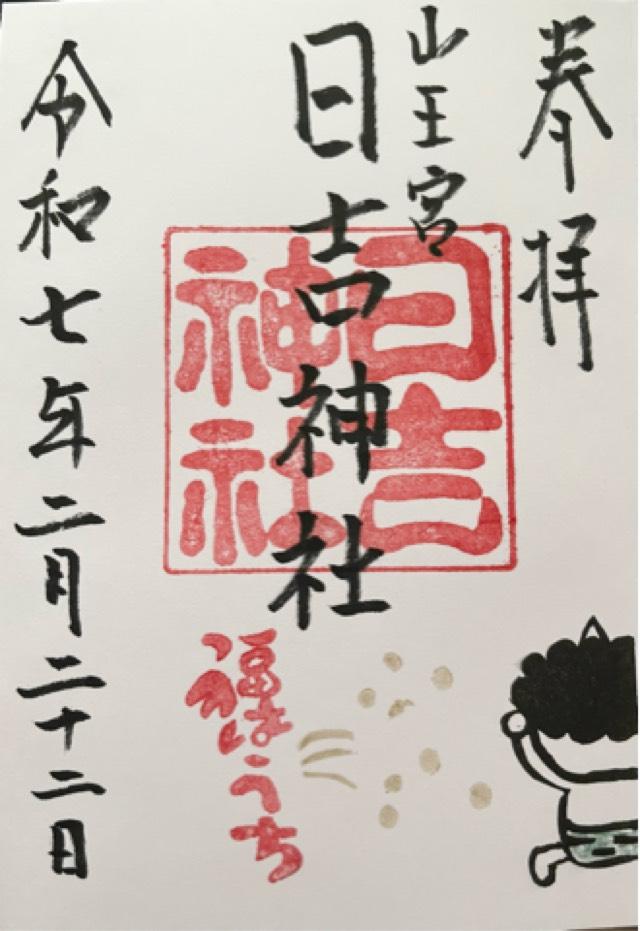 奉拝
山王宮
日吉神社
日吉
神社
福はうち
令和七年二月二十二日